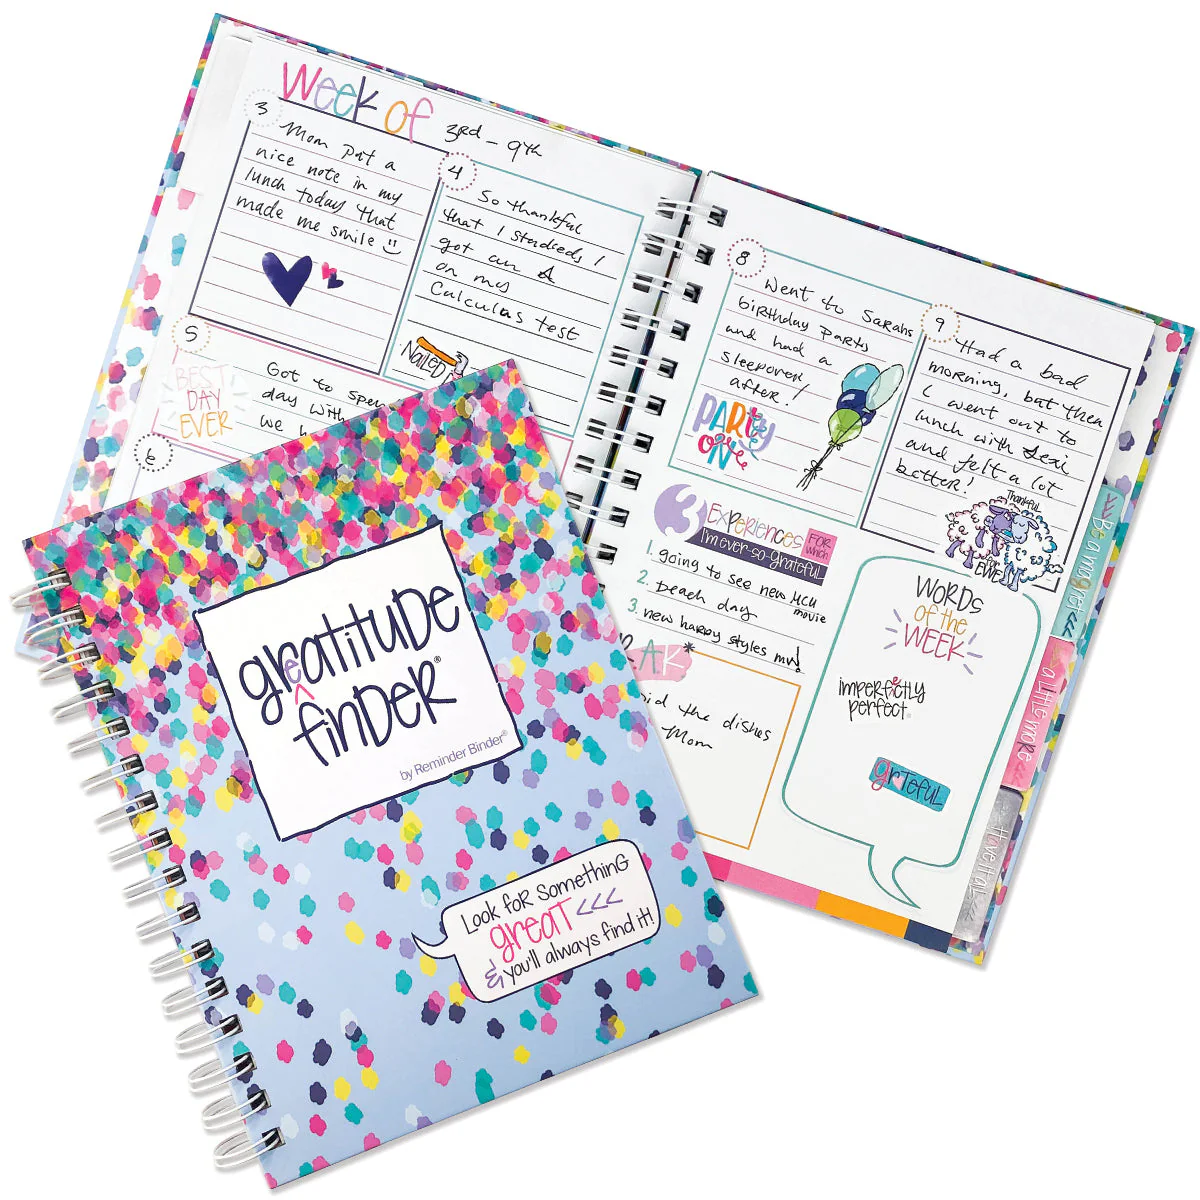 Week of 3rd - 9th
3
Mom put a
nice note in my
lunch today that
made me smile
4
So thankful
that I studied, I
got an A
on my
Calculus test
NaileD
5
BEST
DAY
EVER
Got to
day with
we
6
8
Went to Sarahs
birthday party
and had a
sleepover
after!
PARTY
ON
9
Had a bad
morning, but then
I went out to
lunch with
and felt a lot
better!
Thankful
FOR
EWE
3 EXPERIENCES FOR which
I'm ever-so-grateful
1. going to see new MCU
movie
2. Beach day
3. new harry styles mv!
the dishes
Mom
WORDS
of the
WEEK
imperfectly
perfect
grateful
Be a magnet <<<
a little more <<<
greatitude
finder®
by Reminder Binder®
Look for something
great <<<
& you'll always find it!